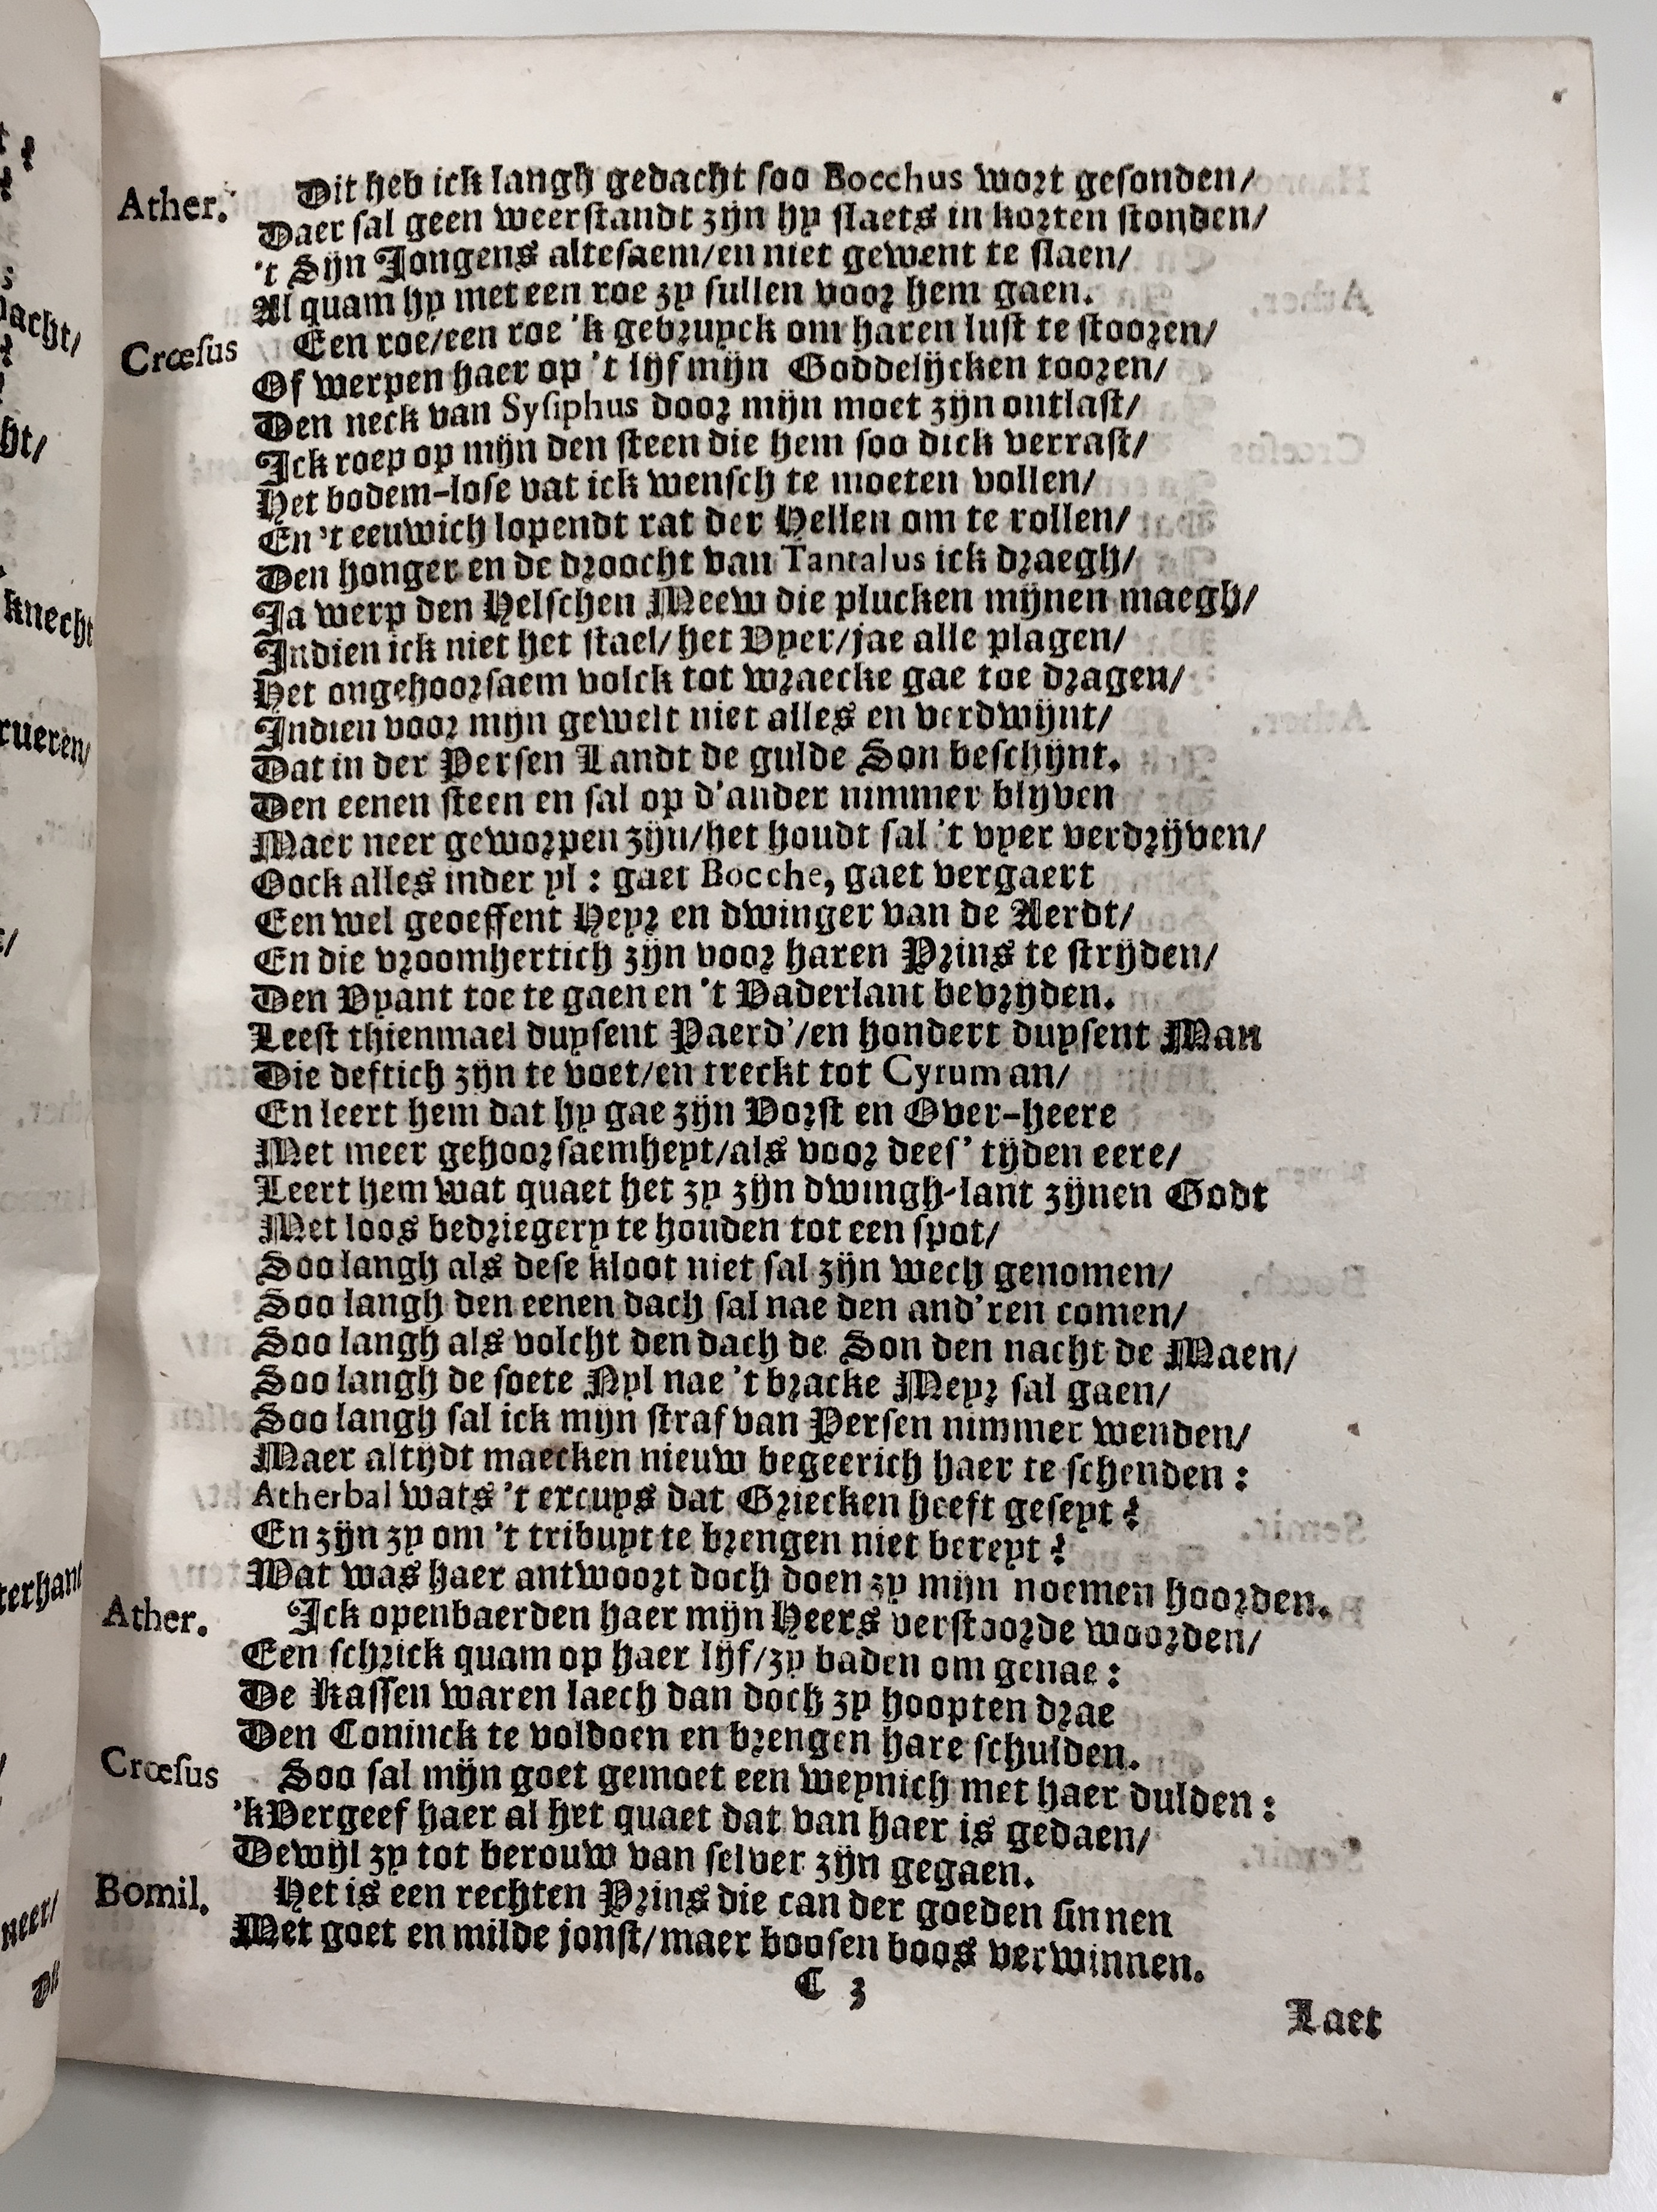 Ather. Dit heb ick langh gedacht soo Bocchus wort gesonden/
Daer sal geen weerstandt zijn hy slaets in korten stonden/
't Sijn Jongens altesaem/en niet gewent te slaen/
Al quam hy met een roe zy sullen voor hem gaen.
Crœsus Een roe/een roe 'k gebruyck om haren lust te stooren/
Of werpen haer op 't lijf mijn Goddelijcken tooren/
Den neck van Sysiphus door mijn moet zijn ontlast/
Ick roep op mijn den steen die hem soo dick verrast/
Het bodem-lose vat ick wensch te moeten vollen/
En 't eeuwich lopendt rat der Hellen om te rollen/
Den honger en de droocht van Tantalus ick draegh/
Ja werp den Helschen Meew die plucken mijnen maegh/
Indien ick niet het stael/het Vyer/jae alle plagen/
Het ongehoorsaem volck tot wraecke gae toe dragen/
Indien voor mijn gewelt niet alles en verdwijnt/
Dat in der Persen Landt de gulde Son beschijnt.
Den eenen steen en sal op d'ander nimmer blijven
Maer neer geworpen zijn/het houdt sal 't vyer verdrijven/
Oock alles inder yl : gaet Bocche, gaet vergaert
Een wel geoeffent Heyr en dwinger van de Aerdt/
En die vroomhertich zijn voor haren Prins te strijden/
Den Vyant toe te gaen en 't Vaderlant bevryden.
Leest thienmael duysent Paerd'/en hondert duysent Man
Die deftich zijn te voet/en treckt tot Cyrum an/
En leert hem dat hy gae zijn Vorst en Over-heere
Met meer gehoorsaemheyt/als voor dees' tijden eere/
Leert hem wat quaet het zy zijn dwingh-lant zijnen Godt
Met loos bedriegery te houden tot een spot/
Soo langh als dese kloot niet sal zijn wech genomen/
Soo langh den eenen dach sal nae den and'ren comen/
Soo langh als volcht den dach de Son den nacht de Maen/
Soo langh de soete Nyl nae 't bracke Meyr sal gaen/
Soo langh sal ick mijn straf van Persen nimmer wenden/
Maer altijdt maecken nieuw begeerich haer te schenden :
Atherbal wats 't excuys dat Griecken heeft geseyt ?
En zijn zy om 't tribuyt te brengen niet bereyt ?
Wat was haer antwoort doch doen zy mijn noemen hoorden.
Ather. Ick openbaerden haer mijn Heers verstoorde woorden/
Een schrick quam op haer lijf/zy baden om genae :
De Kassen waren laech dan doch zy hoopten drae
Den Coninck te voldoen en brengen hare schulden.
Crœsus Soo sal mijn goet gemoet een weynich met haer dulden :
'k Vergeef haer al het quaet dat van haer is gedaen/
Dewijl zy tot berouw van selver zijn gegaen.
Bomil. Het is een rechten Prins die can der goeden sinnen
Met goet en milde jonst/maer boosen boos verwinnen.
C 3
Laet